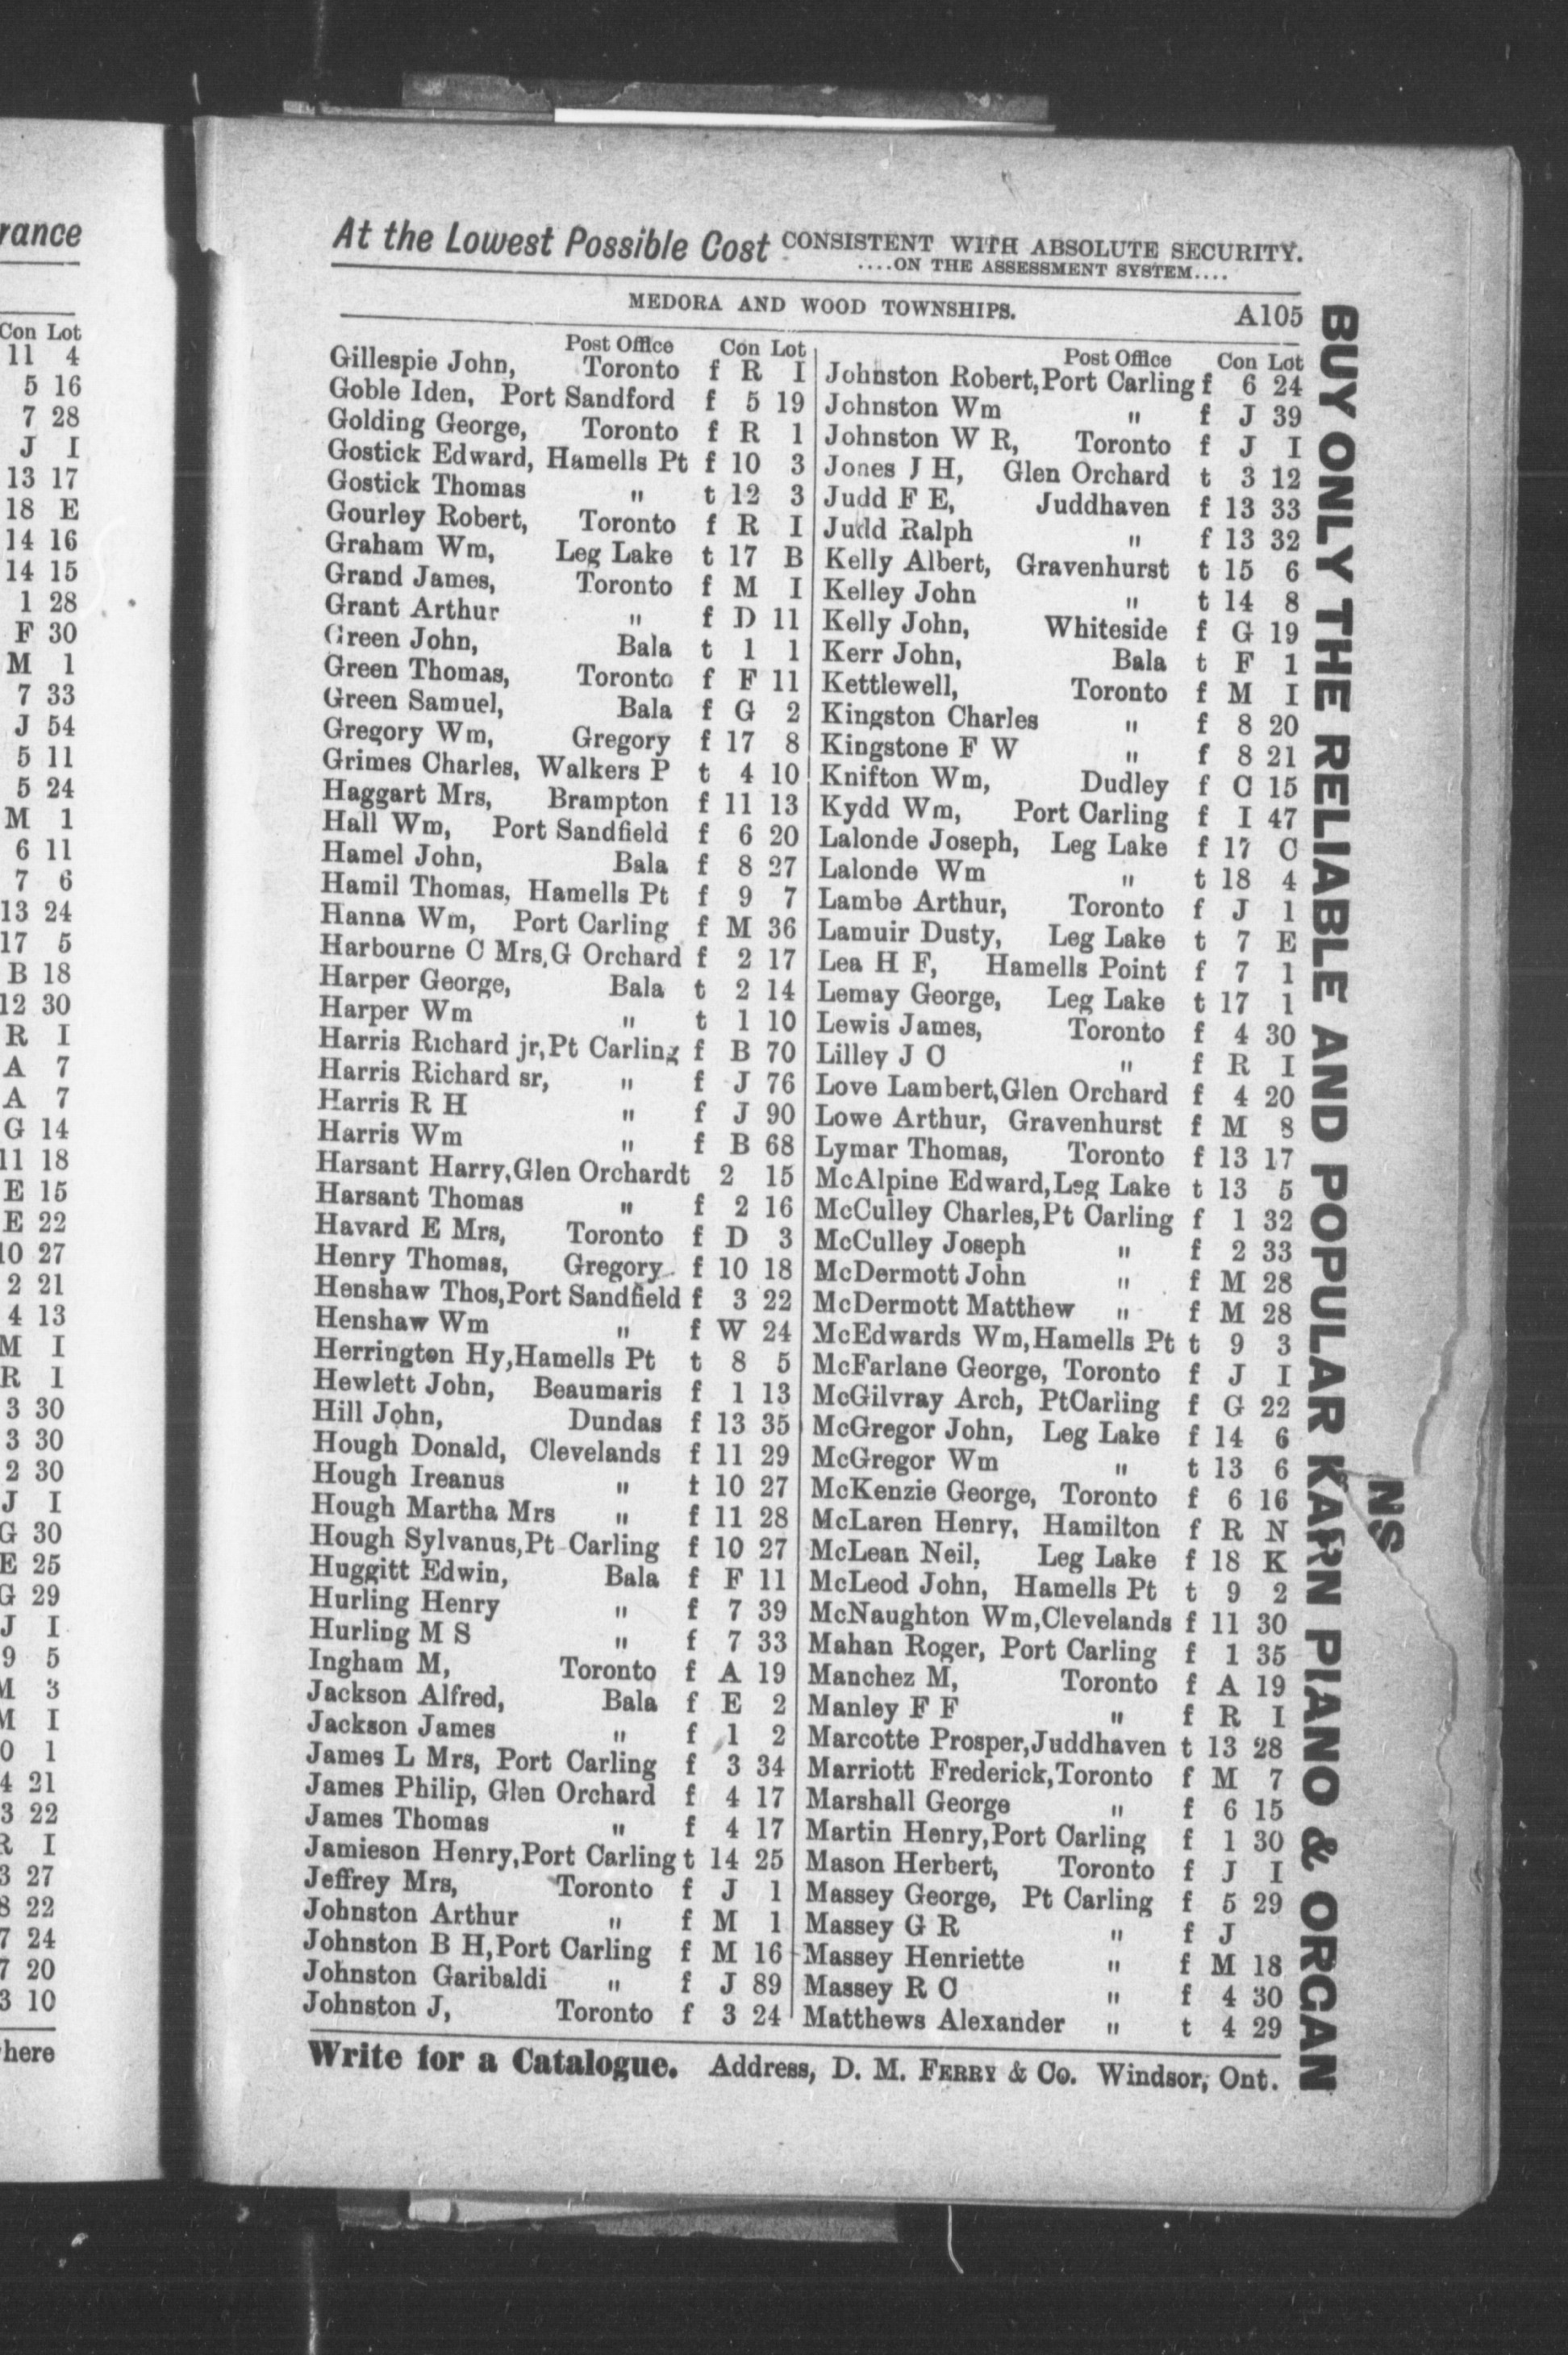 rance
Con Lot
11 4
5 16
7 28
J I
13 17
18 E
14 16
14 15
1 28
F 30
M 1
7 33
J 54
5 11
5 24
M 1
6 11
7 6
13 24
17 5
B 18
12 30
R I
A 7
A 7
G 14
11 18
E 15
E 22
10 27
2 21
4 13
M I
R I
3 30
3 30
2 30
J I
G 30
E 25
G 29
J I
9 5
M 3
M I
0 1
4 21
3 22
R I
3 27
8 22
7 24
7 20
3 10
here
At the Lowest Possible Cost CONSISTENT WITH ABSOLUTE SECURITY.
....ON THE ASSESSMENT SYSTEM....
MEDORA AND WOOD TOWNSHIPS. A105
Post Office Con Lot
Gillespie John, Toronto f R I
Goble Iden, Port Sandford f 5 19
Golding George, Toronto f R 1
Gostick Edward, Hamells Pt f 10 3
Gostick Thomas " t 12 3
Gourley Robert, Toronto f R I
Graham Wm, Leg Lake t 17 B
Grand James, Toronto f M I
Grant Arthur " f D 11
Green John, Bala t 1 1
Green Thomas, Toronto f F 11
Green Samuel, Bala f G 2
Gregory Wm, Gregory f 17 8
Grimes Charles, Walkers P t 4 10
Haggart Mrs, Brampton f 11 13
Hall Wm, Port Sandfield f 6 20
Hamel John, Bala f 8 27
Hamil Thomas, Hamells Pt f 9 7
Hanna Wm, Port Carling f M 36
Harbourne C Mrs, G Orchard f 2 17
Harper George, Bala t 2 14
Harper Wm " t 1 10
Harris Richard jr, Pt Carling f B 70
Harris Richard sr, " f J 76
Harris R H " f J 90
Harris Wm " f B 68
Harsant Harry, Glen Orchard t 2 15
Harsant Thomas " f 2 16
Havard E Mrs, Toronto f D 3
Henry Thomas, Gregory f 10 18
Henshaw Thos, Port Sandfield f 3 22
Henshaw Wm " f W 24
Herrington Hy, Hamells Pt t 8 5
Hewlett John, Beaumaris f 1 13
Hill John, Dundas f 13 35
Hough Donald, Clevelands f 11 29
Hough Ireanus " t 10 27
Hough Martha Mrs " f 11 28
Hough Sylvanus, Pt Carling f 10 27
Huggitt Edwin, Bala f F 11
Hurling Henry " f 7 39
Hurling M S " f 7 33
Ingham M, Toronto f A 19
Jackson Alfred, Bala f E 2
Jackson James " f 1 2
James L Mrs, Port Carling f 3 34
James Philip, Glen Orchard f 4 17
James Thomas " f 4 17
Jamieson Henry, Port Carling t 14 25
Jeffrey Mrs, Toronto f J 1
Johnston Arthur " f M 1
Johnston B H, Port Carling f M 16
Johnston Garibaldi " f J 89
Johnston J, Toronto f 3 24
Post Office Con Lot
Johnston Robert, Port Carling f 6 24
Johnston Wm " f J 39
Johnston W R, Toronto f J I
Jones J H, Glen Orchard t 3 12
Judd F E, Juddhaven f 13 33
Judd Ralph " f 13 32
Kelly Albert, Gravenhurst t 15 6
Kelley John " t 14 8
Kelly John, Whiteside f G 19
Kerr John, Bala t F 1
Kettlewell, Toronto f M I
Kingston Charles " f 8 20
Kingstone F W " f 8 21
Knifton Wm, Dudley f C 15
Kydd Wm, Port Carling f I 47
Lalonde Joseph, Leg Lake f 17 C
Lalonde Wm " t 18 4
Lambe Arthur, Toronto f J 1
Lamuir Dusty, Leg Lake t 7 E
Lea H F, Hamells Point f 7 1
Lemay George, Leg Lake t 17 1
Lewis James, Toronto f 4 30
Lilley J C " f R I
Love Lambert, Glen Orchard f 4 20
Lowe Arthur, Gravenhurst f M 8
Lymar Thomas, Toronto f 13 17
McAlpine Edward, Leg Lake t 13 5
McCulley Charles, Pt Carling f 1 32
McCulley Joseph " f 2 33
McDermott John " f M 28
McDermott Matthew " f M 28
McEdwards Wm, Hamells Pt t 9 3
McFarlane George, Toronto f J I
McGilvray Arch, Pt Carling f G 22
McGregor John, Leg Lake f 14 6
McGregor Wm " t 13 6
McKenzie George, Toronto f 6 16
McLaren Henry, Hamilton f R N
McLean Neil, Leg Lake f 18 K
McLeod John, Hamells Pt t 9 2
McNaughton Wm, Clevelands f 11 30
Mahan Roger, Port Carling f 1 35
Manchez M, Toronto f A 19
Manley F F " f R I
Marcotte Prosper, Juddhaven t 13 28
Marriott Frederick, Toronto f M 7
Marshall George " f 6 15
Martin Henry, Port Carling f 1 30
Mason Herbert, Toronto f J I
Massey George, Pt Carling f 5 29
Massey G R " f J
Massey Henriette " f M 18
Massey R C " f 4 30
Matthews Alexander " t 4 29
Write for a Catalogue. Address, D. M. FERRY & Co. Windsor, Ont.
BUY ONLY THE RELIABLE AND POPULAR KARN PIANO & ORGAN
NS